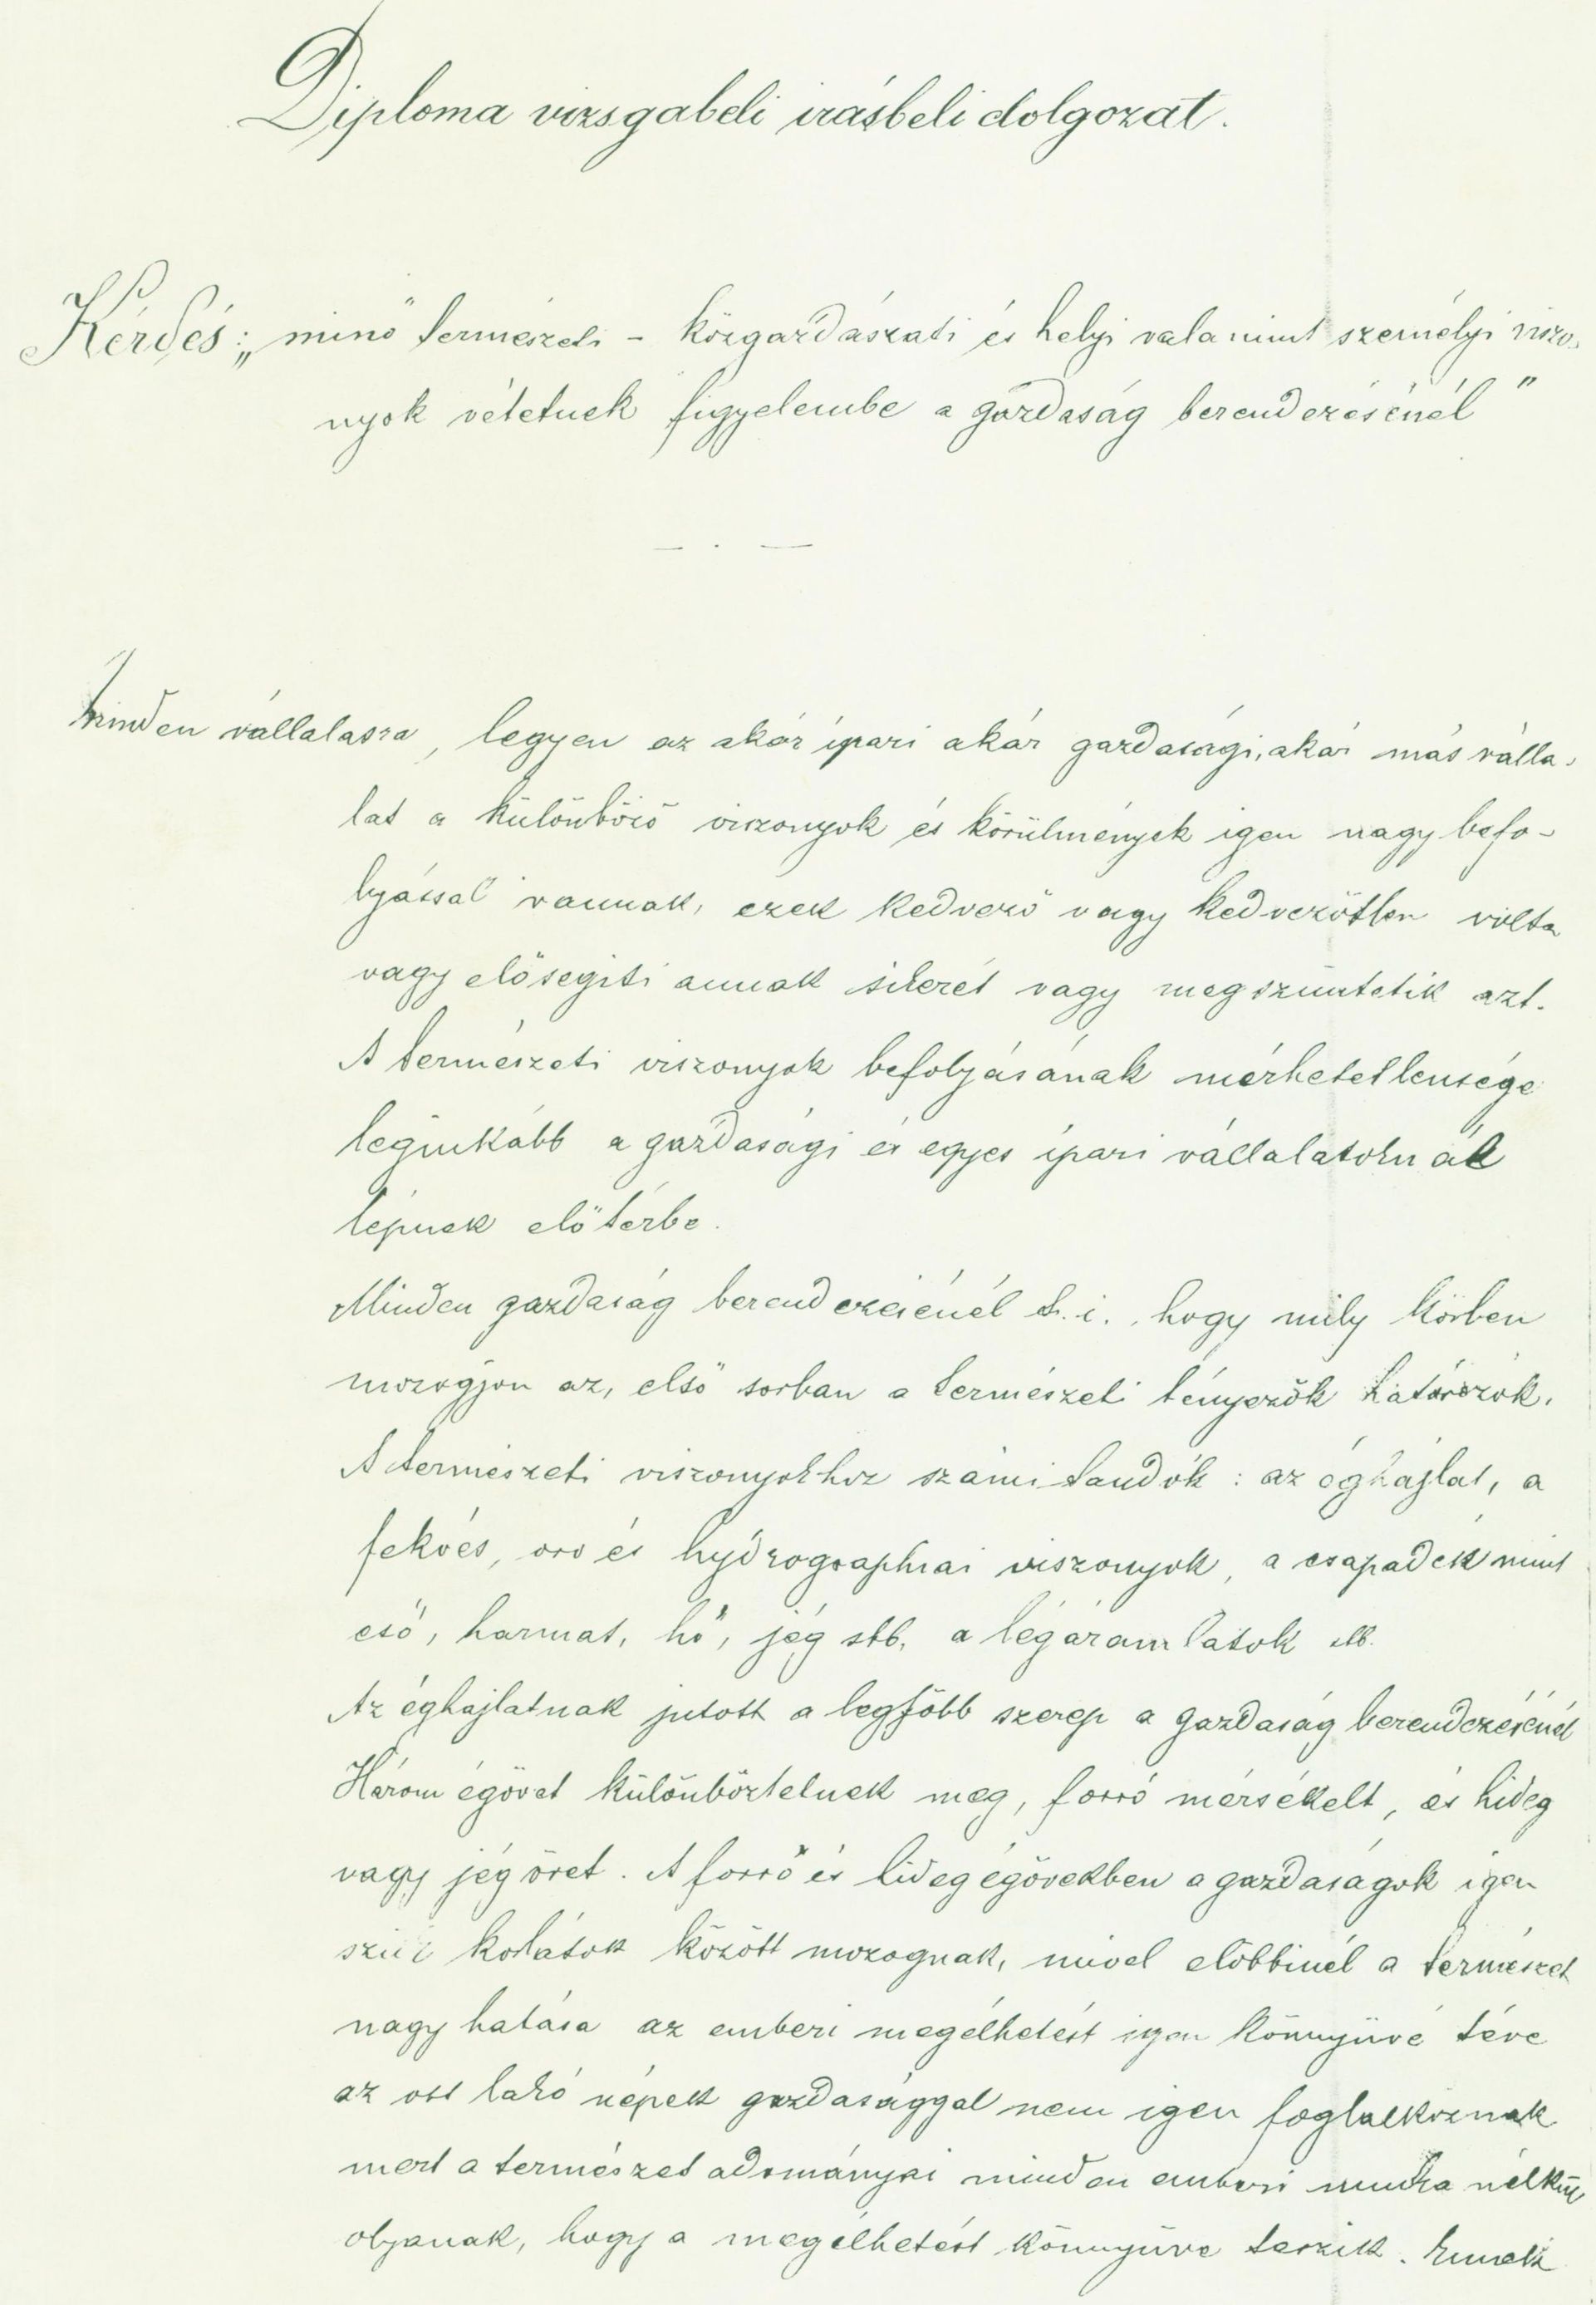 Diploma vizsgabeli irásbeli dolgozat.
Kérdés: „minő természeti - közgazdászati és helyi valamint személyi viszo-
nyok vétetnek figyelembe a gazdaság berendezésénél"
Minden vállalatra, legyen az akár ipari akár gazdasági, akár más válla-
lat a különböző viszonyok és körülmények igen nagy befo-
lyással vannak, ezek kedvező vagy kedvezőtlen volta
vagy elősegiti annak sikerét vagy megszüntetik azt.
A természeti viszonyok befolyásának mérhetetlensége
leginkább a gazdasági és egyes ipari vállalatoknál
lépnek előtérbe.
Minden gazdaság berendezésénél t. i., hogy mily körben
mozogjon az, első sorban a természeti tényezők határozók.
A természeti viszonyokhoz számitandók: az éghajlat, a
fekvés, oro és hydrographiai viszonyok, a csapadék mint
eső, harmat, hó, jég stb. a légáramlatok stb.
Az éghajlatnak jutott a legfőbb szerep a gazdaság berendezésénél
Három égövet különböztetnek meg, forró mérsékelt, és hideg
vagy jég övet. A forró és hideg égövekben a gazdaságok igen
szük korlátok között mozognak, mivel előbbinél a természet
nagy hatása az emberi megélhetést igen könnyüvé téve
az ott lakó népek gazdasággal nem igen foglalkoznak
mert a természet adományai minden emberi munka nélkül
olyanak, hogy a megélhetést könnyüve teszik. Ennek